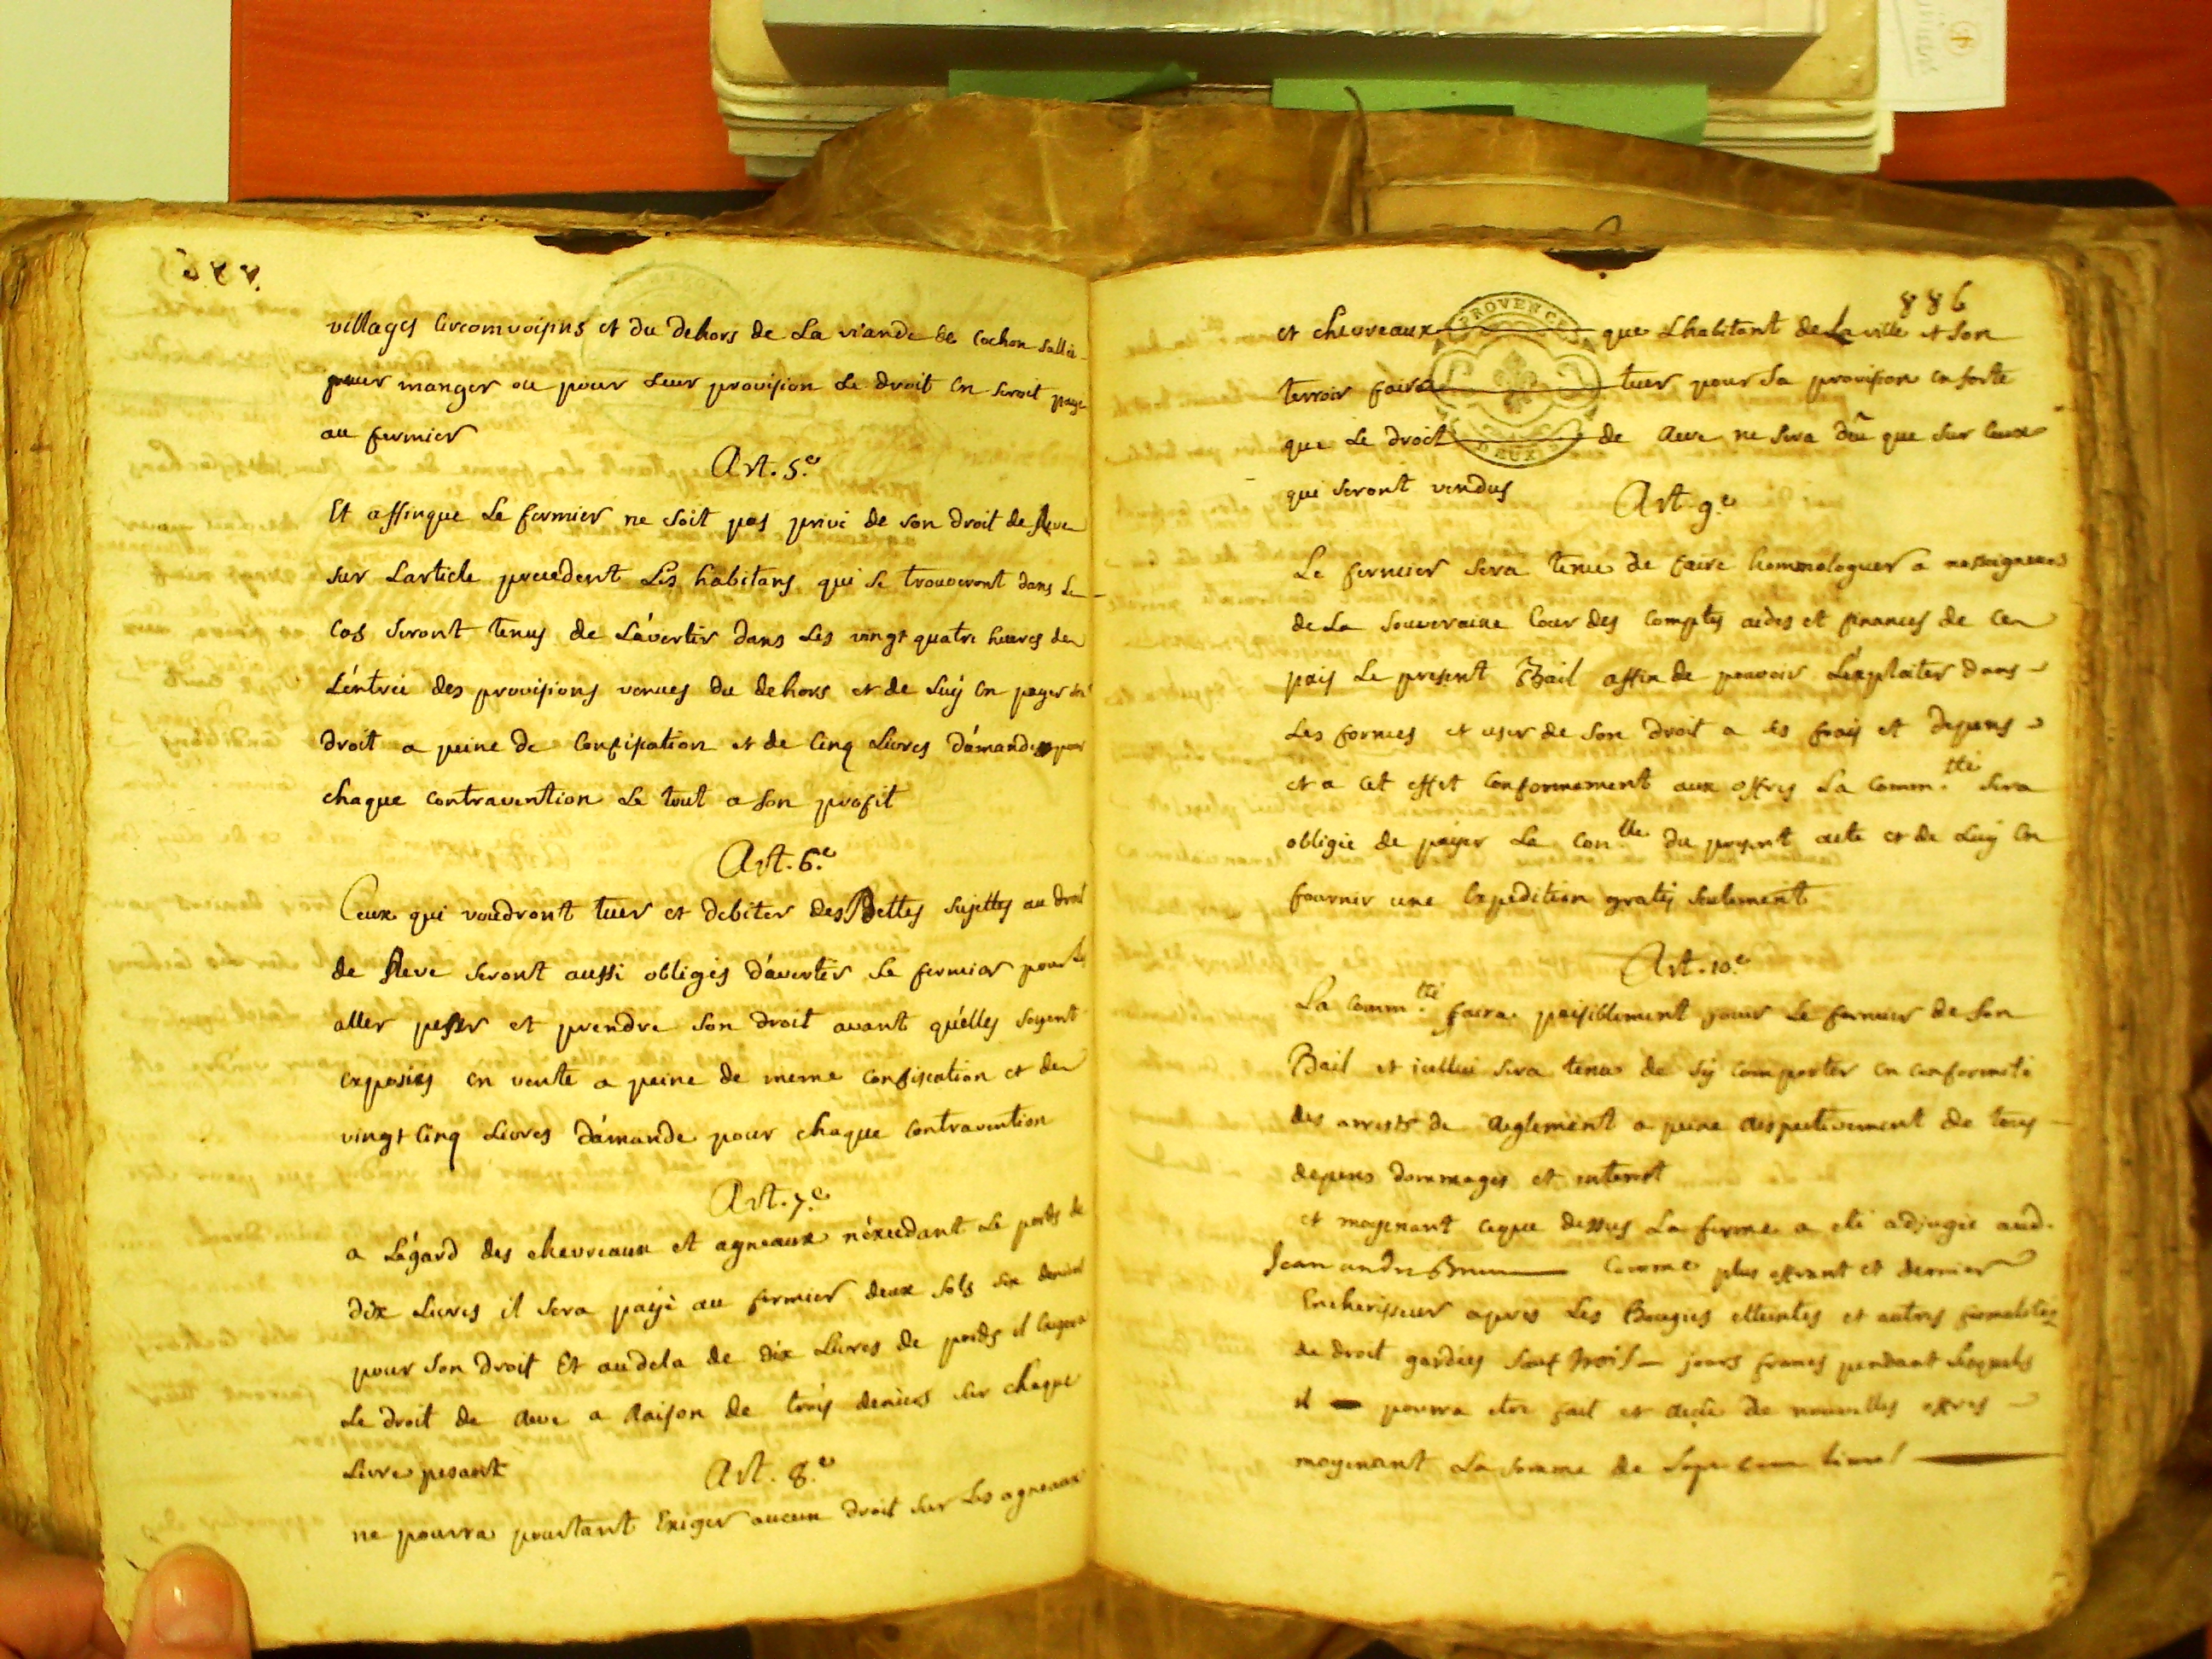 villages circomvoisins et du dehors de La viande de cochon sallée
pour manger ou pour Leur provision Le droit en seroit payé
au fermier
Art. 5.e
Et affinque Le fermier ne soit pas privé de son droit de Reve
sur Larticle precedent Les habitans qui se trouveront dans Le
cas seront tenus de L'avertir dans Les vingt quatre heures de
L'entrée des provisions venues du dehors et de Luy en payer son
droit a peine de confiscation et de cinq Livres d'amande pour
chaque contravention Le tout a son profit
Art. 6.e
Ceux qui voudront tuer et debiter des Bettes sujettes au droit
de Reve seront aussi obligés d'avertir Le fermier pour Les
aller peser et prendre son droit avant qu'elles soyent
exposées en vente a peine de meme confiscation et de
vingt cinq Livres d'amande pour chaque contravention
Art. 7.e
a L'egard des chevreaux et agneaux n'exedant Le poids de
dix Livres il sera payé au fermier deux sols six deniers
pour son droit Et audela de dix Livres de poids il exigera
Le droit de Reve a Raison de trois deniers sur chaque
Livre pesant
Art. 8.e
ne pourra pourtant Exiger aucun droit sur Les agneaux
886
PROVENCE
DEUX
et chevreaux que L'habitant de La ville et son
terroir faira tuer pour sa provision en sorte
que Le droit de Reve ne sera deu que sur ceux
qui seront vendus
Art. 9.e
Le fermier sera tenu de faire hommologuer a nosseigneurs
de La souveraine Cour des Comptes aides et finances de ce
pais Le present Bail affin de pouvoir L'exploiter dans
Les formes et user de son droit a ses frais et depens
et a cet effet conformement aux offres La comm.té sera
obligée de payer Le con.lle du present acte et de Luy en
fournir une Expedition gratis seulement
Art. 10.e
La comm.té faira paisiblement jouir Le fermier de son
Bail et icellui sera tenu de s'y comporter en conformité
des arrests de Reglement a peine respectivement de tous
depens dommages et interest
et moyenant ceque dessus La ferme a eté adjugée aud.
Jean andre Brun Comme plus offrant et dernier
Encherisseur apres Les Bougies etteintes et autres formalites
de droit gardées sauf trois jours francs pendant Lesquels
il pourra etre fait et Reçu de nouvelles offres
moyenant La somme de Sept cens Livres